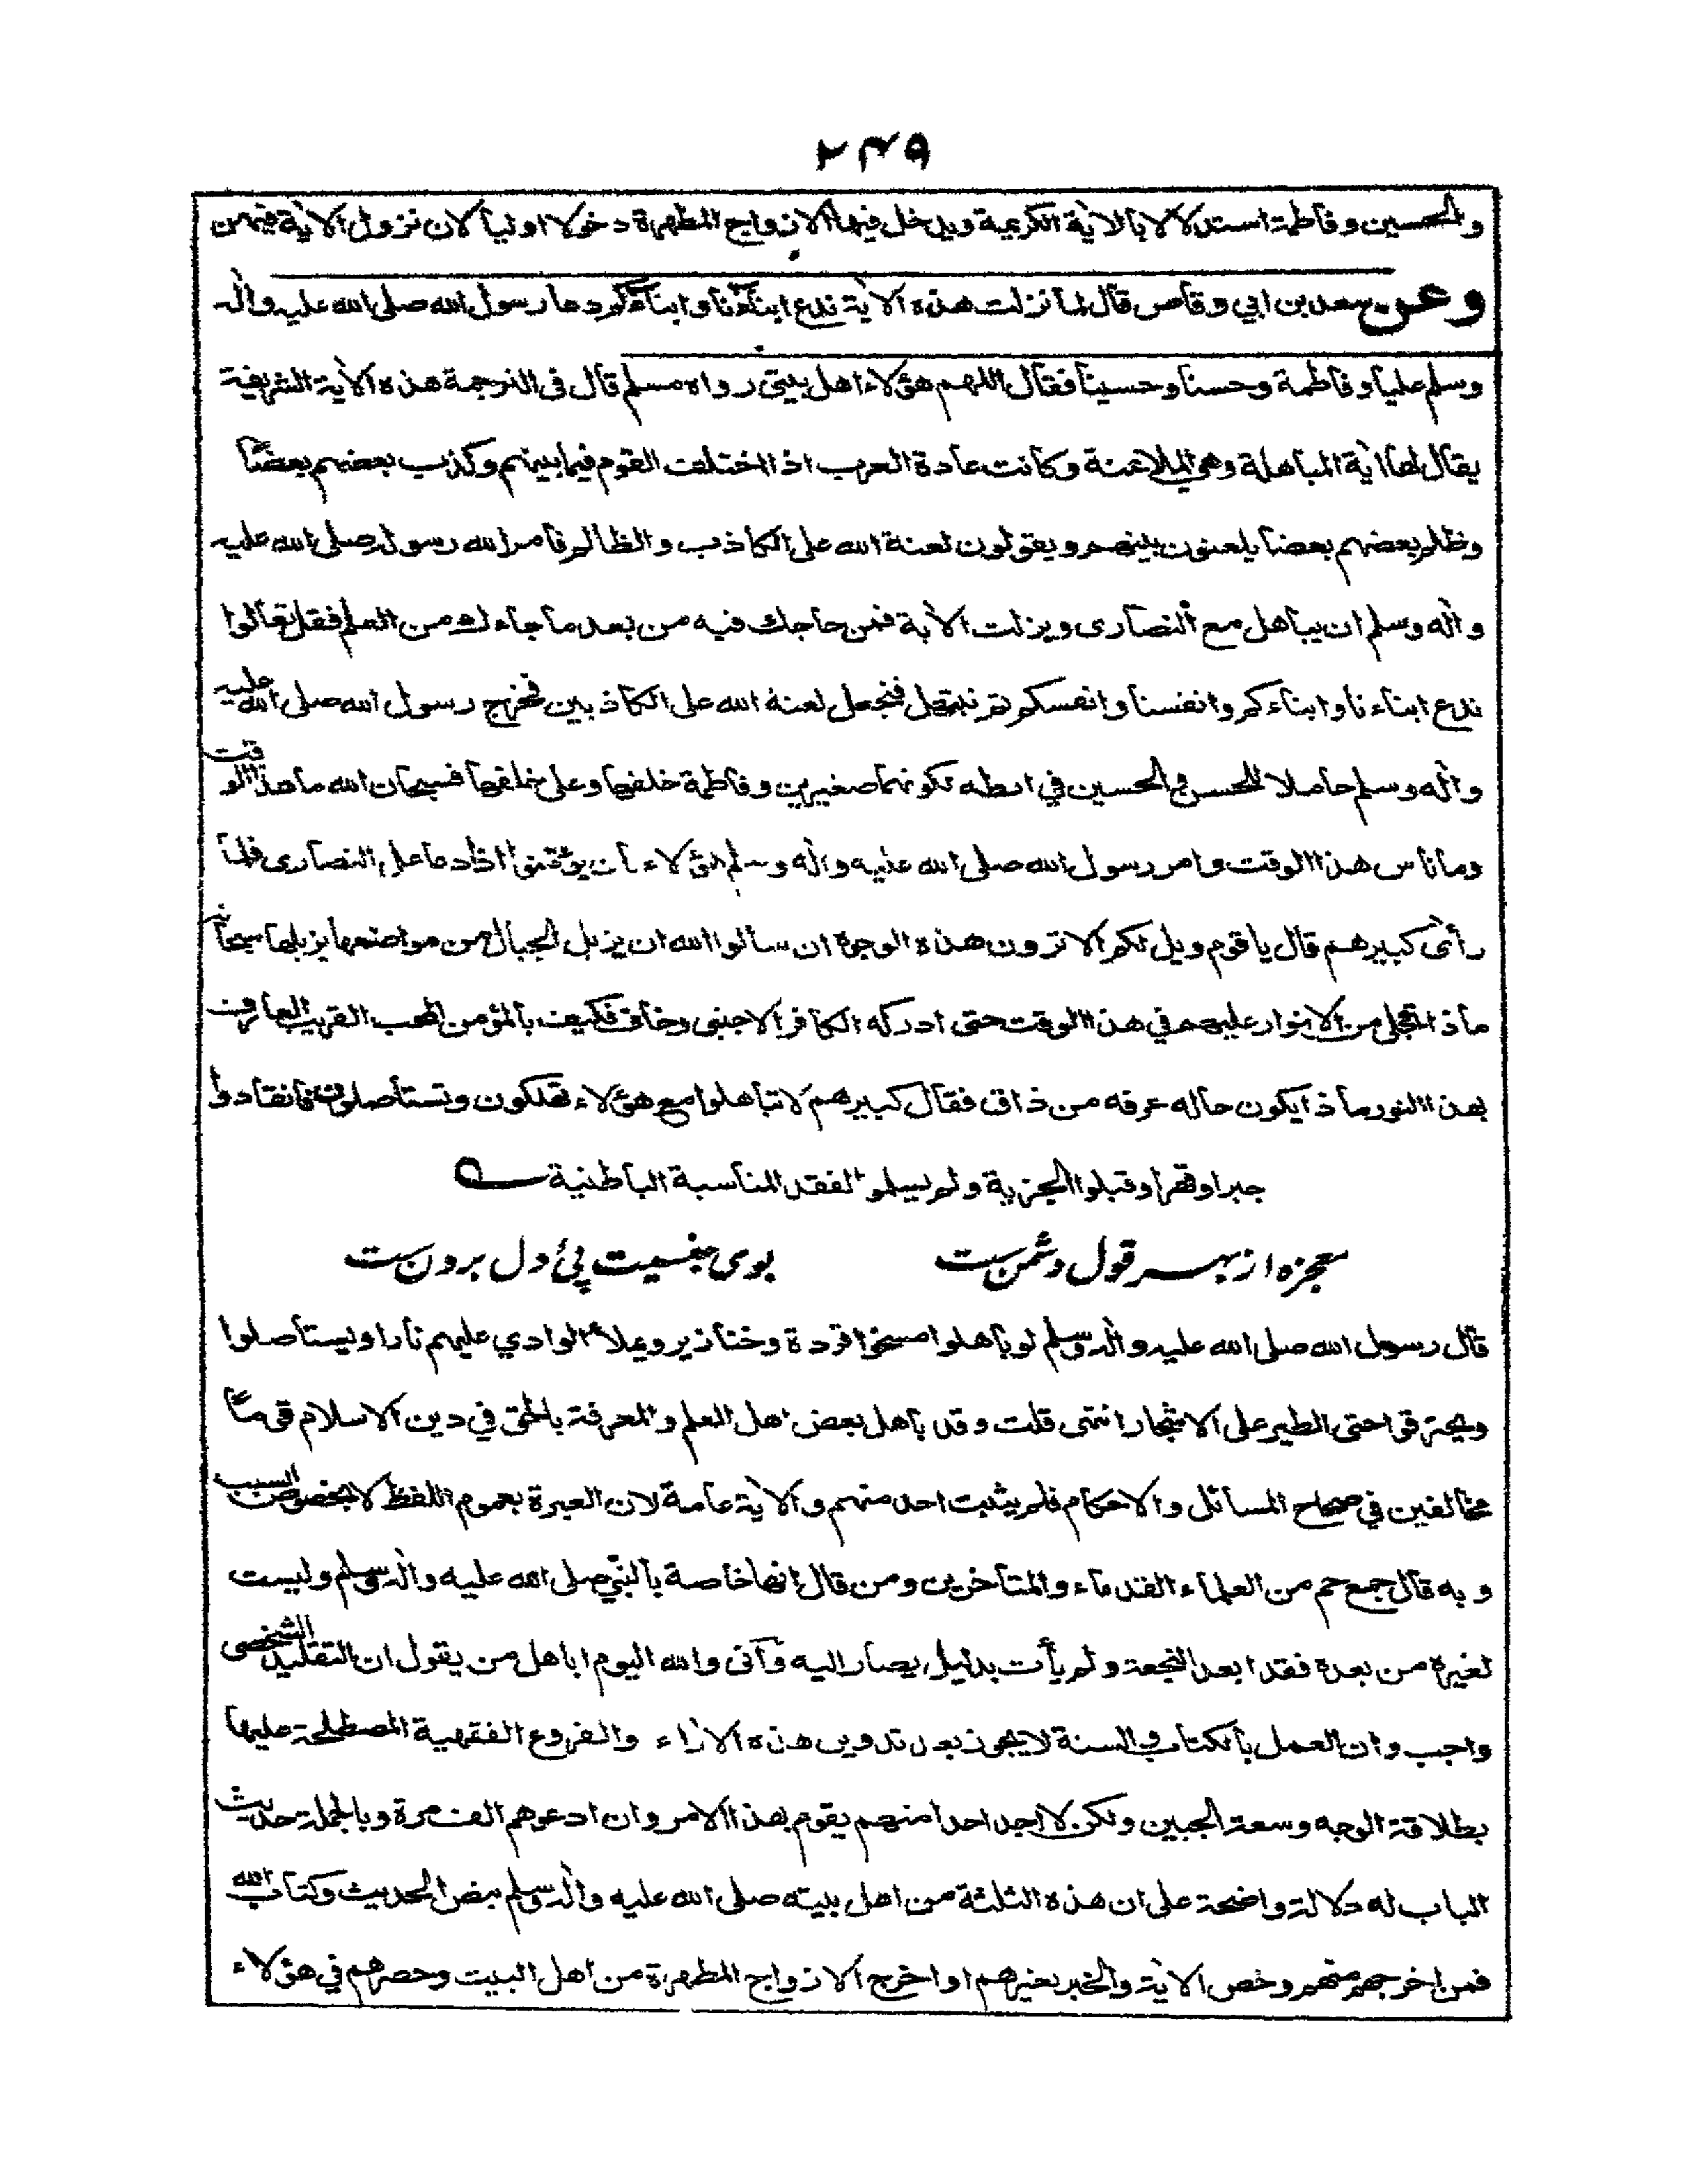 ۲۴۹
والحسين وفاطمة استدلالا بالاية الكريمة ويدخل فيها الازواج المطهرة دخولا اوليا لان نزول الاية فيهن
وعن سعد بن ابي وقاص قال لما نزلت هذه الاية ندع ابناءنا وابناءكم دعا رسول الله صلى الله عليه واٰله
وسلم عليا وفاطمة وحسنا وحسينا فقال اللهم هؤلاء اهل بيتى رواه مسلم قال فى الترجمة هذه الاية الشريفة
يقال لها اية المباهلة وهي الملاعنة وكانت عادة العرب اذا اختلف القوم فيما بينهم وكذب بعضهم بعضا
وظلم بعضهم بعضا يلعنون بينهم ويقولون لعنة الله على الكاذب والظالم فامر الله رسوله صلى الله عليه
واٰله وسلم ان يباهل مع النصارى ونزلت الاية فمن حاجك فيه من بعد ما جاءك من العلم فقل تعالوا
ندع ابناءنا وابناءكم وانفسنا وانفسكم ثم نبتهل فنجعل لعنة الله على الكاذبين فخرج رسول الله صلى الله عليه
واٰله وسلم حاملا للحسن والحسين في ابطه لكونهما صغيرين وفاطمة خلفها وعلى خلفها فسبحان الله ما هذا الوقت
وما ناس هذا الوقت وامر رسول الله صلى الله عليه واٰله وسلم هؤلاء بان يؤمنوا اذا دعا على النصارى فلما
رأى كبيرهم قال يا قوم ويل لكم الا ترون هذه الوجوه ان سألوا الله ان يزيل الجبال من مواضعها يزيلها سبحانه
ماذا تجلى من الانوار عليهم في هذا الوقت حتى ادركه الكافر الاجنبى وخاف فكيف بالمؤمن المحب القريب العارف
بهذا النور ماذا يكون حاله عرفه من ذاق فقال كبيرهم لا تباهلوا مع هؤلاء تهلكون وتستأصلون فانقادوا
جبرا وقهرا وقبلوا الجزية ولم يسلموا لفقد المناسبة الباطنية
معجزه از بهر قول دشمن ست
بوى جنسيت پئ دل بردن ست
قال رسول الله صلى الله عليه واٰله وسلم لو باهلوا مسخوا قردة وخنازير ويملأ الوادي عليهم نارا وليستأصلوا
ويحترقوا حتى الطير على الاشجار انتهى قلت وقد باهل بعض اهل العلم والمعرفة بالحق في دين الاسلام قوما
مخالفين في صحاح المسائل والاحكام فلم يثبت احد منهم والاية عامة لان العبرة بعموم اللفظ لا بخصوص السبب
وبه قال جمع جم من العلماء القدماء والمتأخرين ومن قال انها خاصة بالنبي صلى الله عليه واٰله وسلم وليست
لغيره من بعده فقد ابعد النجعة ولم يأت بدليل يصار اليه وانى والله اليوم اباهل من يقول ان التقليد الشخصى
واجب وان العمل بالكتاب والسنة لا يجوز بعد تدوين هذه الاراء والفروع الفقهية المصطلحة عليها
بطلاقة الوجه وسعة الجبين ولكن لا اجد احدا منهم يقوم بهذا الامر وان ادعوهم الف مرة وبالجملة حديث
الباب له دلالة واضحة على ان هذه الثلثة من اهل بيته صلى الله عليه واٰله وسلم بنص الحديث وكتاب الله
فمن اخرجهم منهم وخص الاية والخبر بغيرهم او اخرج الازواج المطهرة من اهل البيت وحصرهم في هؤلاء